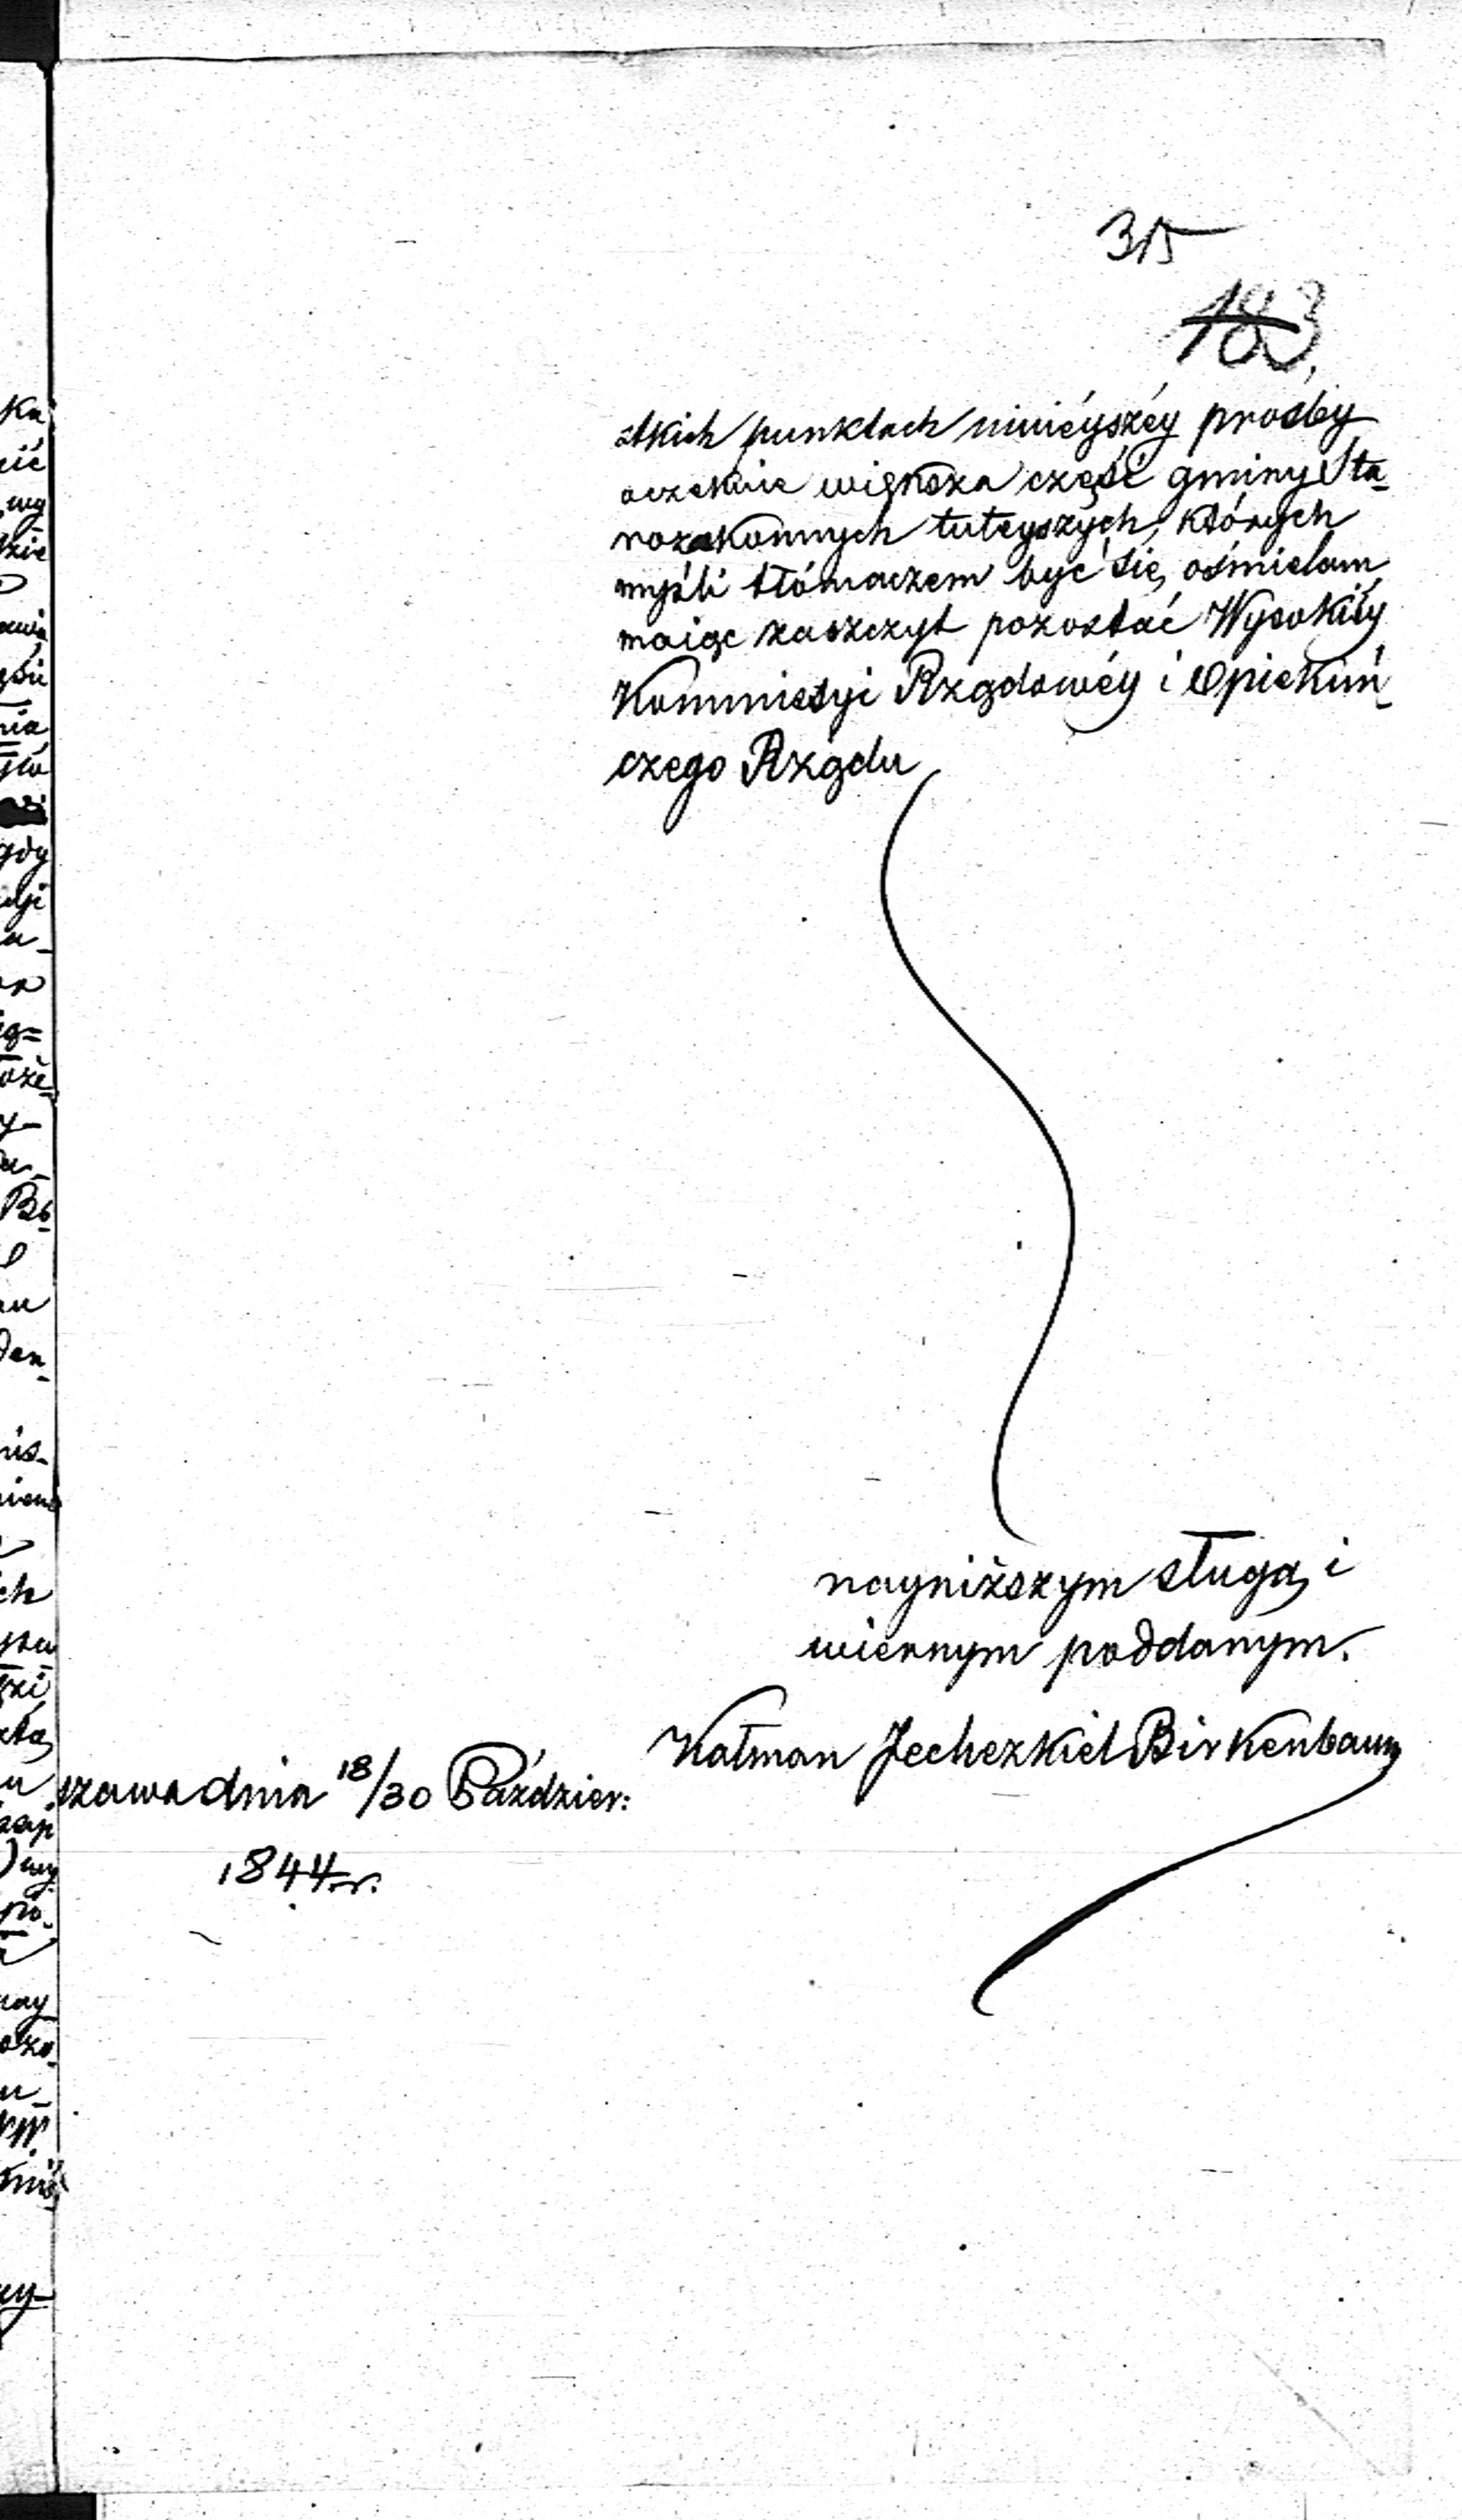 315
183.
stkich punktach ninieyszéy prosby
oczekuie większa część gminy Sta_
rozakonnych tuteyszych, których
myśli tłómaczem być się ośmielam
maiąc zaszczyt pozostać Wysokiéy
Kommissyi Rządowéy i Opiekuń_
czego Rządu
nayniższym sługą i
wiernym poddanym.
Kałman Jechezkiel Birkenbaum
szawa dnia 18/30 Paździer:
1844 r.